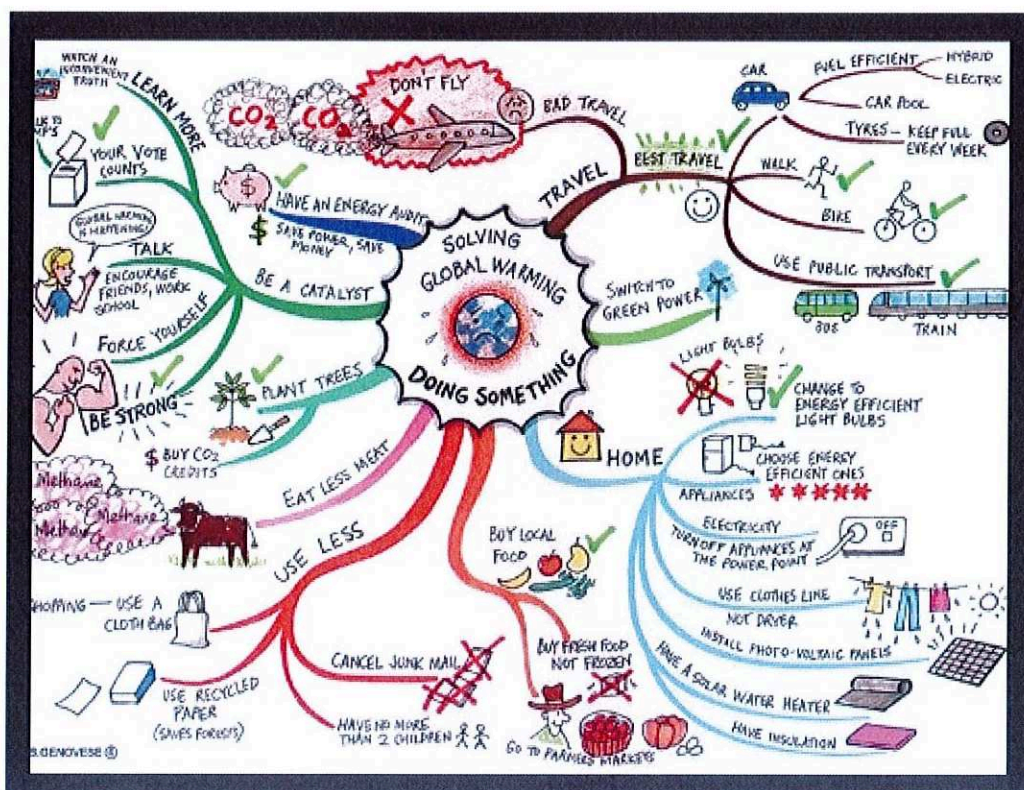 SOLVING
GLOBAL WARMING
DOING SOMETHING
TRAVEL
BAD TRAVEL
DON'T FLY
CO2
CO2
BEST TRAVEL
CAR
FUEL EFFICIENT
HYBRID
ELECTRIC
CAR POOL
TYRES – KEEP FULL
EVERY WEEK
WALK
BIKE
USE PUBLIC TRANSPORT
BUS
TRAIN
SWITCH TO
GREEN POWER
HOME
LIGHT BULBS
CHANGE TO
ENERGY EFFICIENT
LIGHT BULBS
APPLIANCES
CHOOSE ENERGY
EFFICIENT ONES
ELECTRICITY
TURN OFF APPLIANCES AT
THE POWER POINT
OFF
USE CLOTHES LINE
NOT DRYER
INSTALL PHOTO-VOLTAIC PANELS
HAVE A SOLAR WATER HEATER
HAVE INSULATION
BUY LOCAL
FOOD
BUY FRESH FOOD
NOT FROZEN
GO TO FARMERS MARKETS
USE LESS
CANCEL JUNK MAIL
HAVE NO MORE
THAN 2 CHILDREN
USE RECYCLED
PAPER
(SAVES FORESTS)
SHOPPING — USE A
CLOTH BAG
EAT LESS MEAT
Methane
Methane
PLANT TREES
$ BUY CO2
CREDITS
BE A CATALYST
LEARN MORE
WATCH AN
INCONVENIENT
TRUTH
YOUR VOTE
COUNTS
GLOBAL WARMING
IS HAPPENING!
TALK
ENCOURAGE
FRIENDS, WORK
SCHOOL
FORCE YOURSELF
BE STRONG
HAVE AN ENERGY AUDIT
$ SAVE POWER, SAVE
MONEY
$
S.GENOVESE